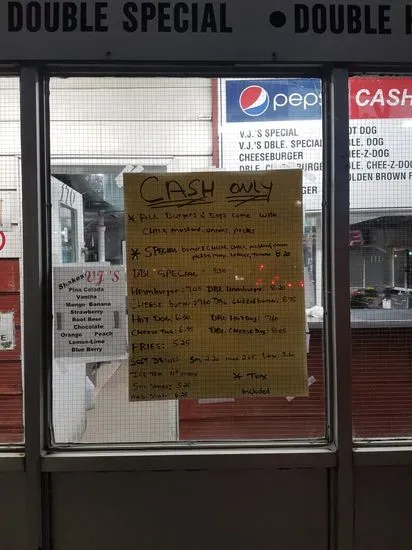 DOUBLE SPECIAL • DOUBLE
pepsi
CASH
V.J.'S SPECIAL
V.J.'S DBLE. SPECIAL
CHEESEBURGER
DBLE.
OT DOG
LE. DOG
EE-Z-DOG
LE. CHEE-Z-DOG
OLDEN BROWN F
CASH ONLY
* ALL Burgers & Dogs come with
CHILI, mustard, onions,
* SPECIAL
DBL SPECIAL -
Hamburger: 7.05 DBL Hamburger: 8.20
CHEESE burger: 7.60 DBL Cheese burger: 8.75
HOT DOG: 6.50 DBL HOT DOG: 7.60
CHEESE DOG: 6.95 DBL CHEESE DOG: 8.05
FRIES: 5.25
SOFT DRINKS Sm. 2.20 med. 2.65
* TAX
Included
Shakes VJ'S
Pina Colada
Vanilla
Mango Banana
Strawberry
Root Beer
Chocolate
Orange Peach
Lemon-Lime
Blue Berry